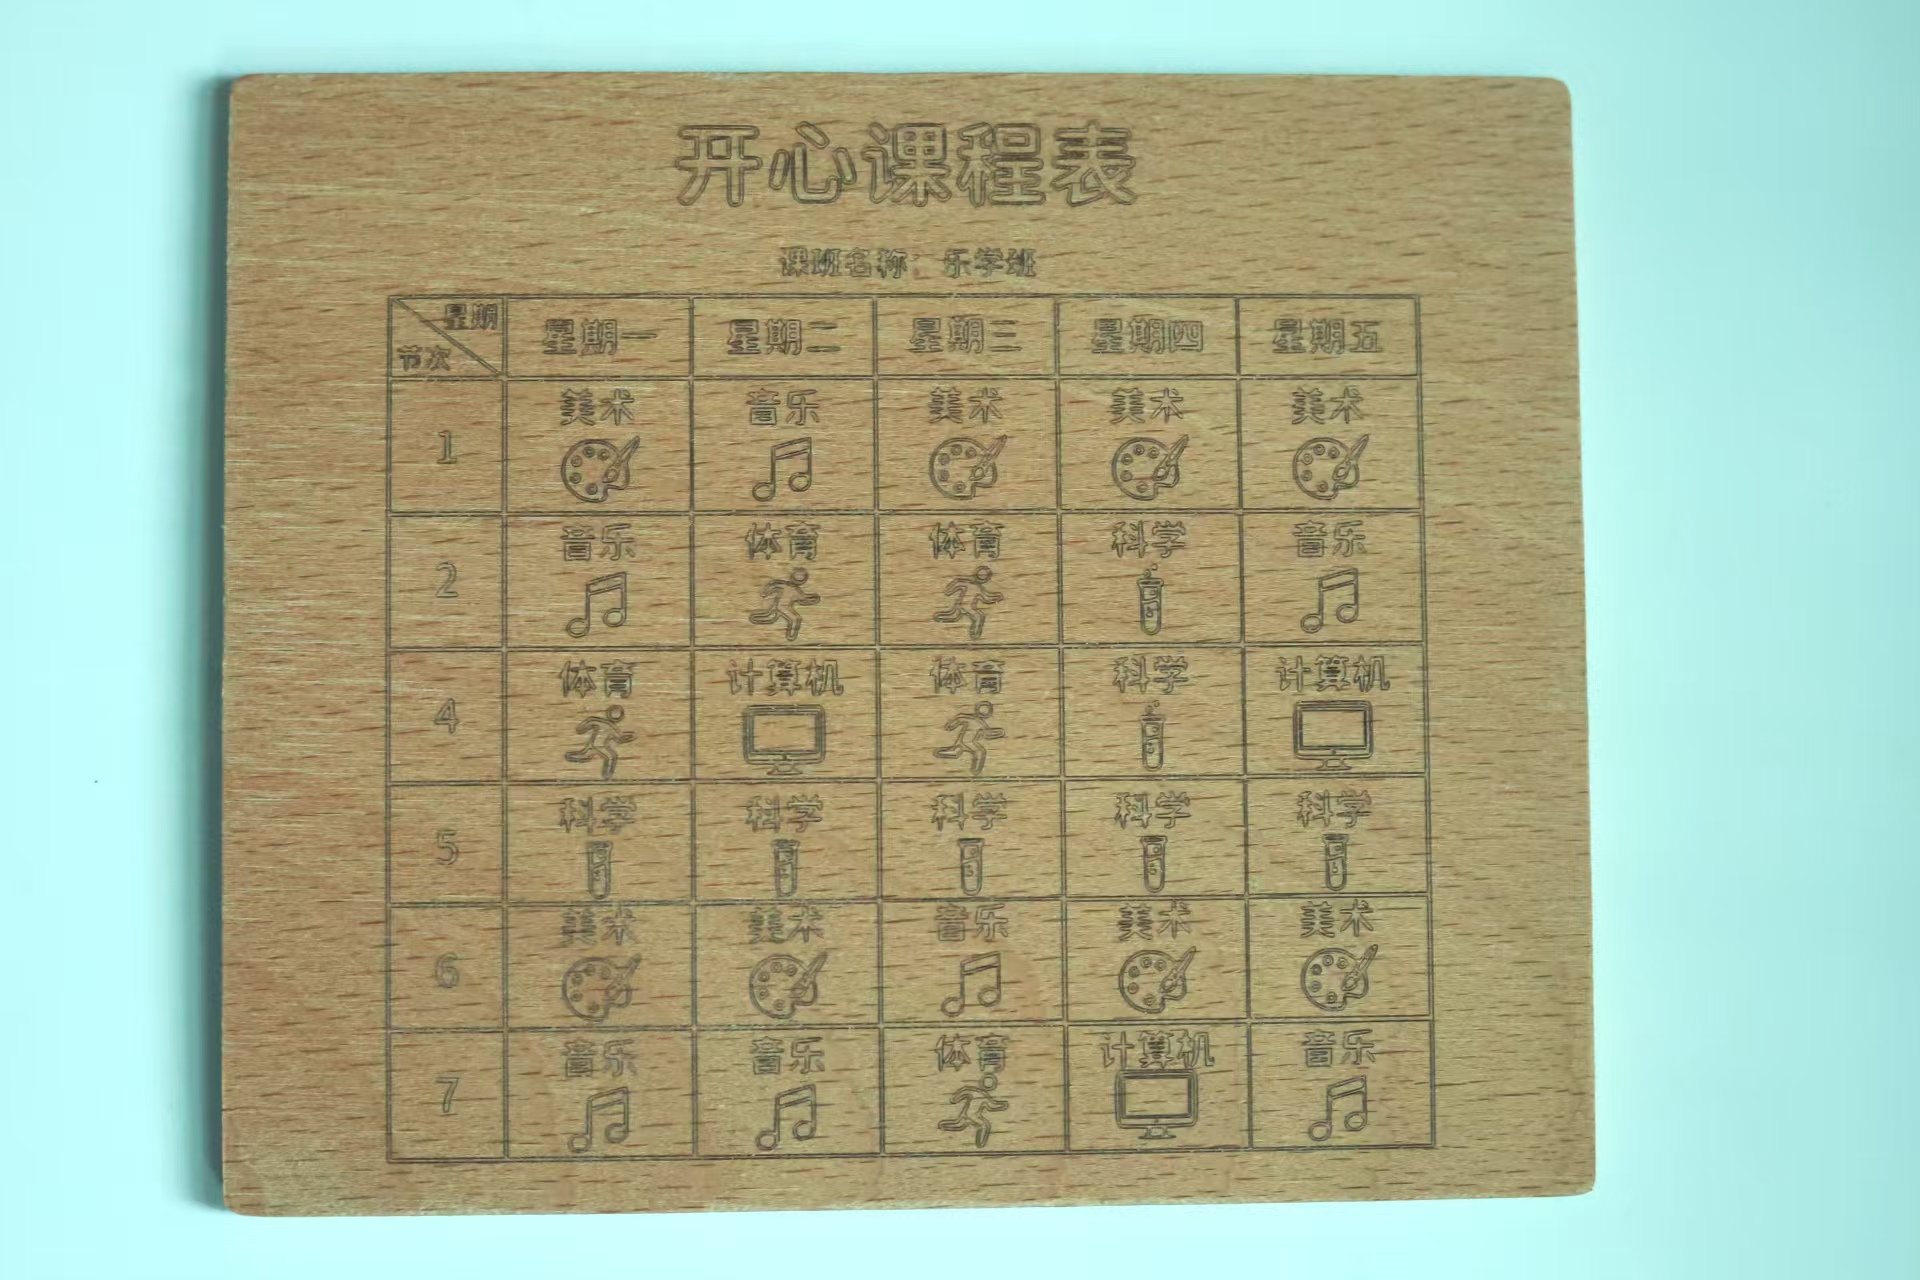 开心课程表
课班名称：乐学班
星期 星期一 星期二 星期三 星期四 星期五
节次
1 美术 音乐 美术 美术 美术
2 音乐 体育 体育 科学 音乐
4 体育 计算机 体育 科学 计算机
5 科学 科学 科学 科学 科学
6 美术 美术 音乐 美术 美术
7 音乐 音乐 体育 计算机 音乐